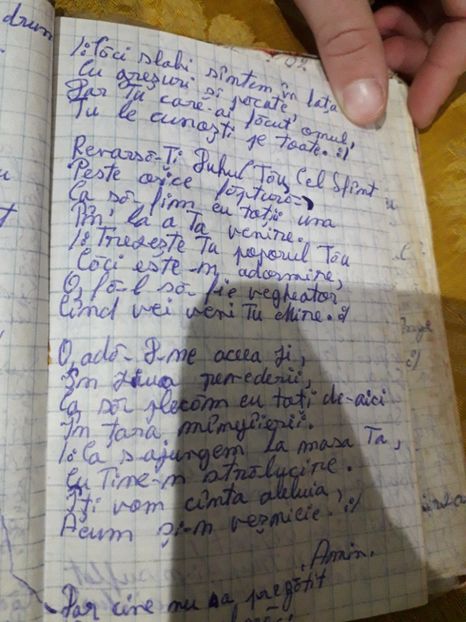 drum
/: Căci slabi sîntem în fața
Cu greșuri și păcate
Dar Tu care-ai făcut omul,
Tu le cunoști pe toate. :/
Revarsă-Ți Duhul Tău Cel Sfînt
Peste orice făptură
Ca să fim cu toții una
Pîn' la a Ta venire.
/: Trezește Tu poporul Tău
Căci este-n adormire,
O, fă-l să fie veghetor
Cînd vei veni Tu Mire. :/
O, adă-Ți-ne aceea zi,
În ziua
Ca să plecăm cu toți de-aici
În țara mîngîierii.
/: Ca s-ajungem la masa Ta,
Cu Tine-n strălucire.
Îți vom cînta aleluia,
Acum și-n veșnicie. :/
Amin.
Dar cine nu s-a pregătit